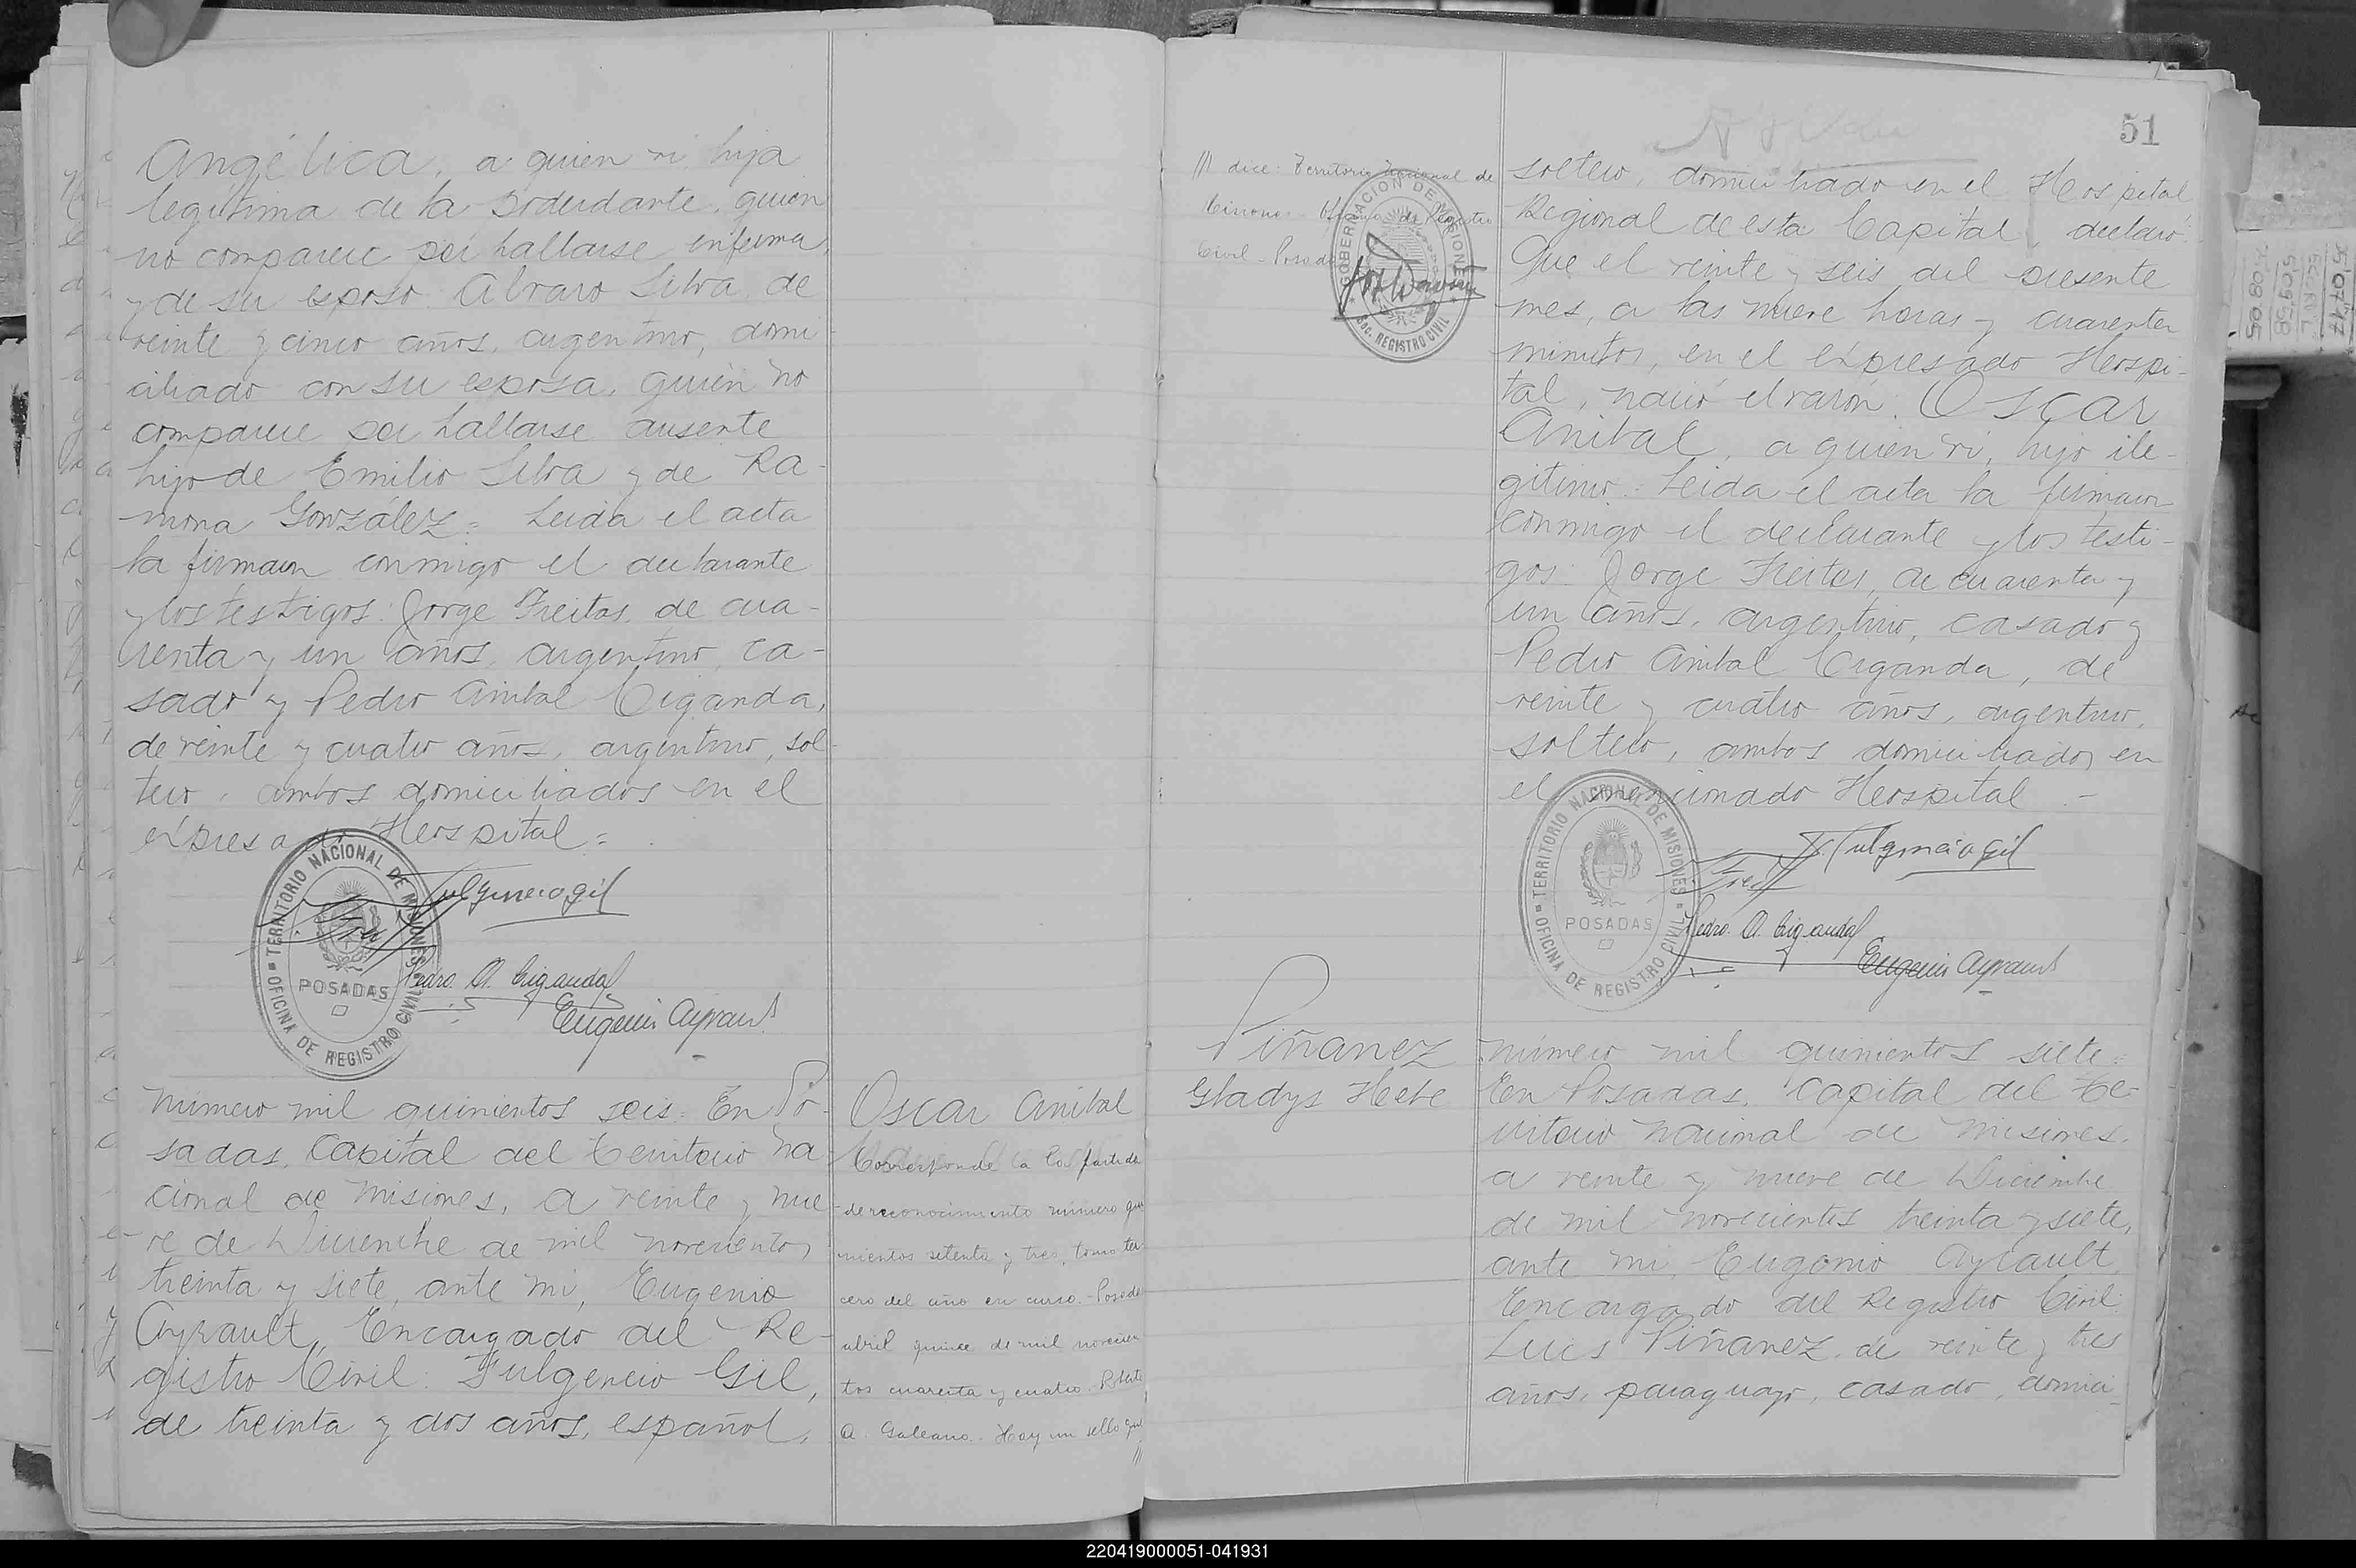 Angélica, a quien vi hija
legítima de la poderdante, quien
no comparece por hallarse enferma,
y de su esposo Alvaro Silva, de
veinte y cinco años, argentino, domi-
ciliado con su esposa, quien no
comparece por hallarse ausente
hijo de Emilio Silva y de Ra-
mona González = Leida el acta
la firmaron conmigo el declarante
y los testigos: Jorge Freitas, de cua-
renta y un años, argentino, ca-
sado y Pedro Anibal Ciganda,
de veinte y cuatro años, argentino, sol-
tero, ambos domiciliados en el
expresado Hospital =
TERRITORIO NACIONAL DE MISIONES
POSADAS
OFICINA DE REGISTRO CIVIL
Fulgencio Gil
Pedro A. Ciganda
Eugenio Ayrault
Número mil quinientos seis: En Po-
sadas, Capital del Territorio Na-
cional de Misiones, a veinte y nue-
ve de Diciembre de mil novecientos
treinta y siete, ante mi, Eugenio
Ayrault, Encargado del Re-
gistro Civil: Fulgencio Gil,
de treinta y dos años, español,
Oscar Anibal
Corresponde a la partida
de reconocimiento número qui
nientos setenta y tres, tomo ter-
cero del año en curso. - Posadas
abril quince de mil novecien
tos cuarenta y cuatro. Roberto
A. Galeano. Hay un sello que
//
// dice: Territorio Nacional de
Misiones - Oficina de Registro
Civil - Posadas
GOBERNACION DE MISIONES
SEC. REGISTRO CIVIL
51
soltero, domiciliado en el Hospital
Regional de esta Capital, declaró:
Que el veinte y seis del presente
mes, a las nueve horas y cuarenta
minutos, en el expresado Hospi-
tal, nació el varón: Oscar
Anibal, a quien vi, hijo ile-
gitimo = Leida el acta la firmaron
conmigo el declarante y los testi-
gos: Jorge Freitas, de cuarenta y
un años, argentino, casado y
Pedro Anibal Ciganda, de
veinte y cuatro años, argentino,
soltero, ambos domiciliados en
el mencionado Hospital. -
TERRITORIO NACIONAL DE MISIONES
POSADAS
OFICINA DE REGISTRO CIVIL
Fulgencio Gil
Pedro A. Ciganda
Eugenio Ayrault
Piñanez
Gladys Hebe
Número mil quinientos siete =
En Posadas, Capital del Te-
rritorio Nacional de Misiones,
a veinte y nueve de Diciembre
de mil novecientos treinta y siete,
ante mi, Eugenio Ayrault,
Encargado del Registro Civil:
Luis Piñanez, de veinte y tres
años, paraguayo, casado, domici-
220419000051-041931